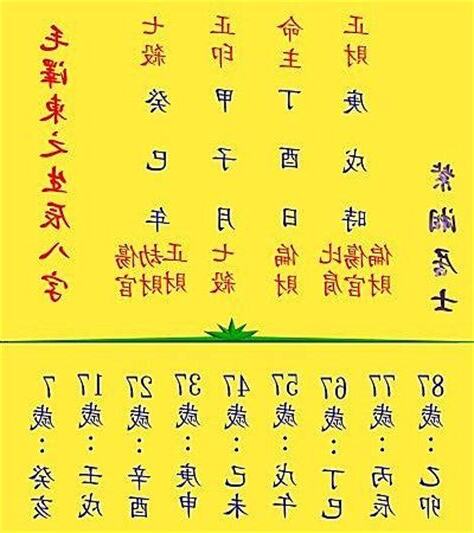 毛澤東之生辰八字
七殺 癸巳年 正財 劫財 傷官
正印 甲子月 七殺
命主 丁酉日 偏財
正財 庚戌時 偏財 傷官 比肩
紫湘居士
7歲：癸亥
17歲：壬戌
27歲：辛酉
37歲：庚申
47歲：己未
57歲：戊午
67歲：丁巳
77歲：丙辰
87歲：乙卯